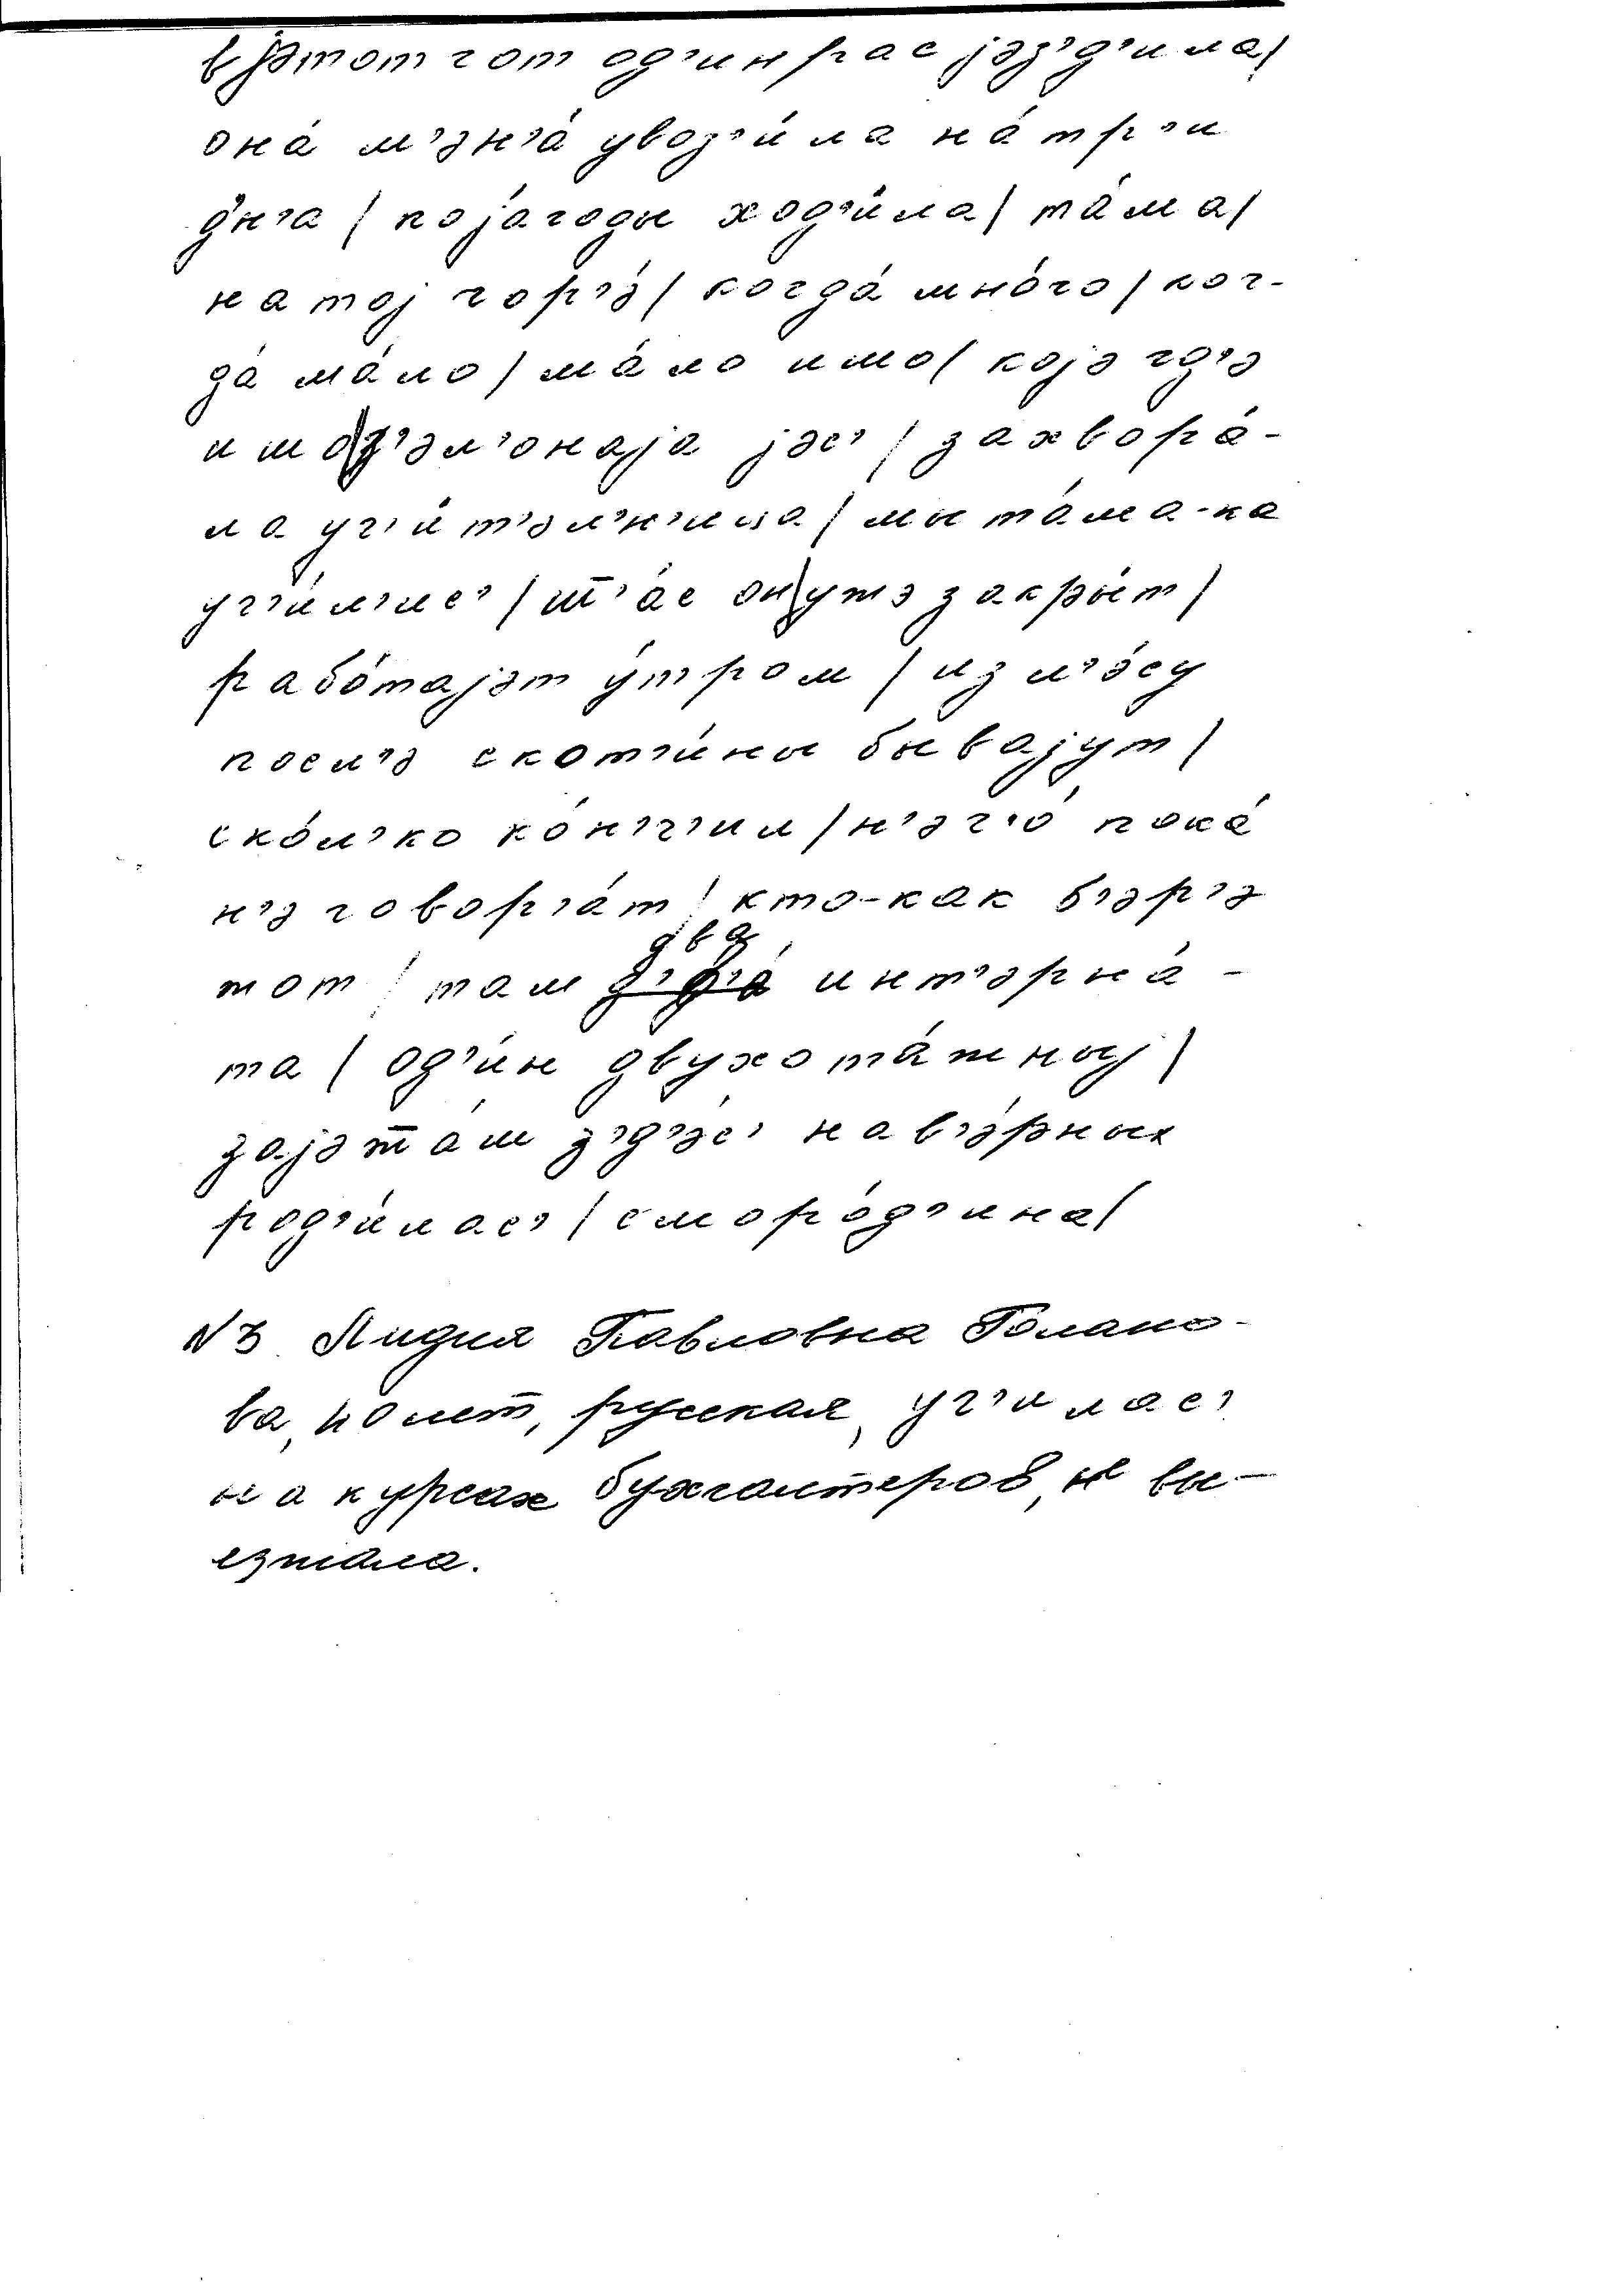 в јэтот гот од'ин рас јэз'д'ила/
она́ м'эн'а́ увоз'и́ла на́ тр'и
дн'а / по јагоды ход'и́ла/ та́ма/
на тој гор'э́/ когда́ мно́го/ ког-
да́ ма́ло/ ма́ло ишо/ којэ гд'э
ишо з'эл'онаја јэс'/ захвора́-
ла уч'и́т'эл'н'ица/ мы та́ма-ка
уч'и́л'ис'/ ш̅'ас он ужэ закры́т/
рабо́тајэт у́тром / из л'э́су
посл'э скот'и́ны бывајут/
ско́л'ко ко́н'ч'ил/ н'эч'о́ пока́
н'э говор'а́т/ кто-как б'эр'э
тот / там два инт'эрна́-
та/ од'и́н двухэта́жный/
зајэт̅а́м з'д'э́с' нав'э́рных
род'и́лас'/ сморо́д'ина/
№3 Лидия Павловна Голако-
ва, 40 лет, русская, уч'илас'
на курсах бухгалтеров, не вы-
езжала.